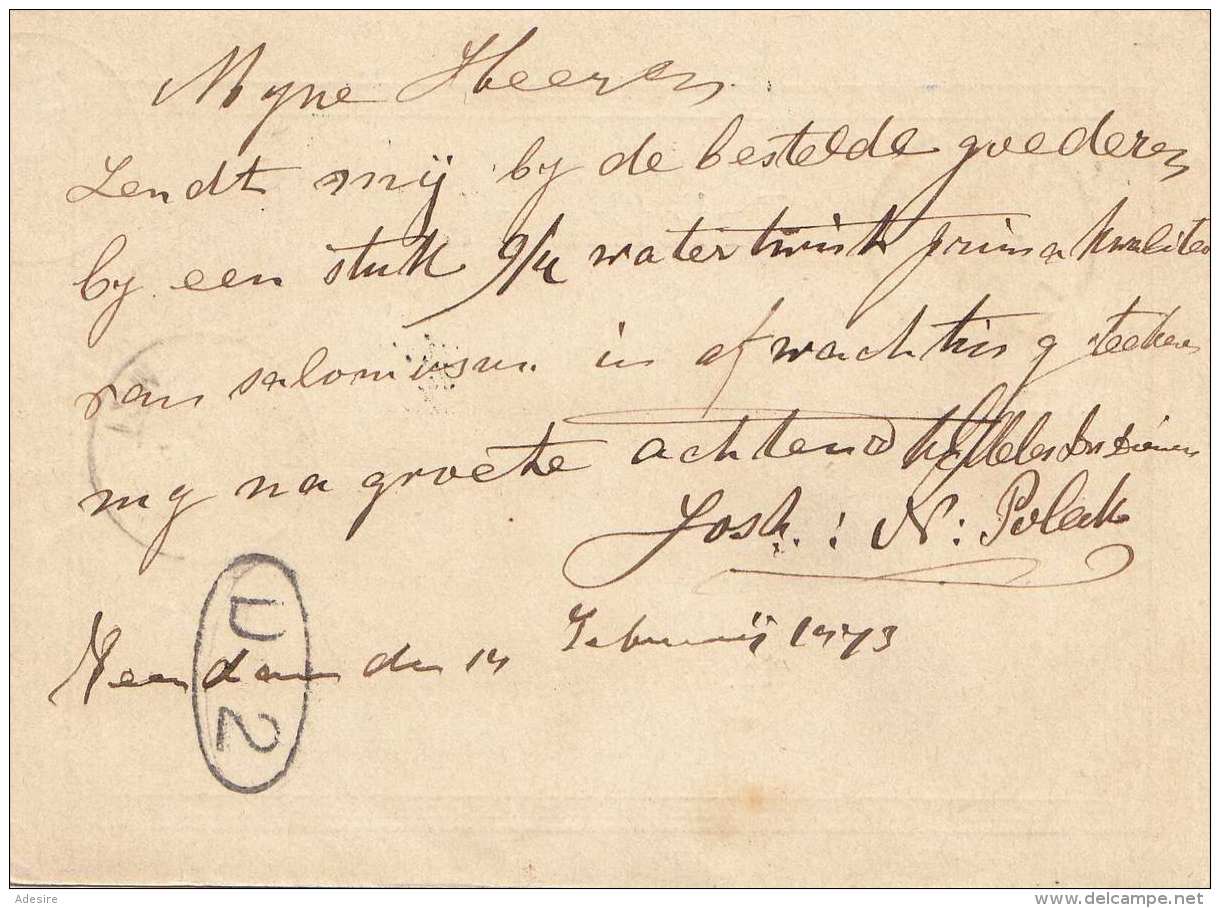 Myne Heeren
Zendt mij by de bestelde goederen
by een stuk 9/4 watertwist prima kwaliteit
van in afwachting teeken
my na groete achtend
Josh: N: Polak
Veendam den 14 Februarij 1873
U 2
Adesire
delcampe.net